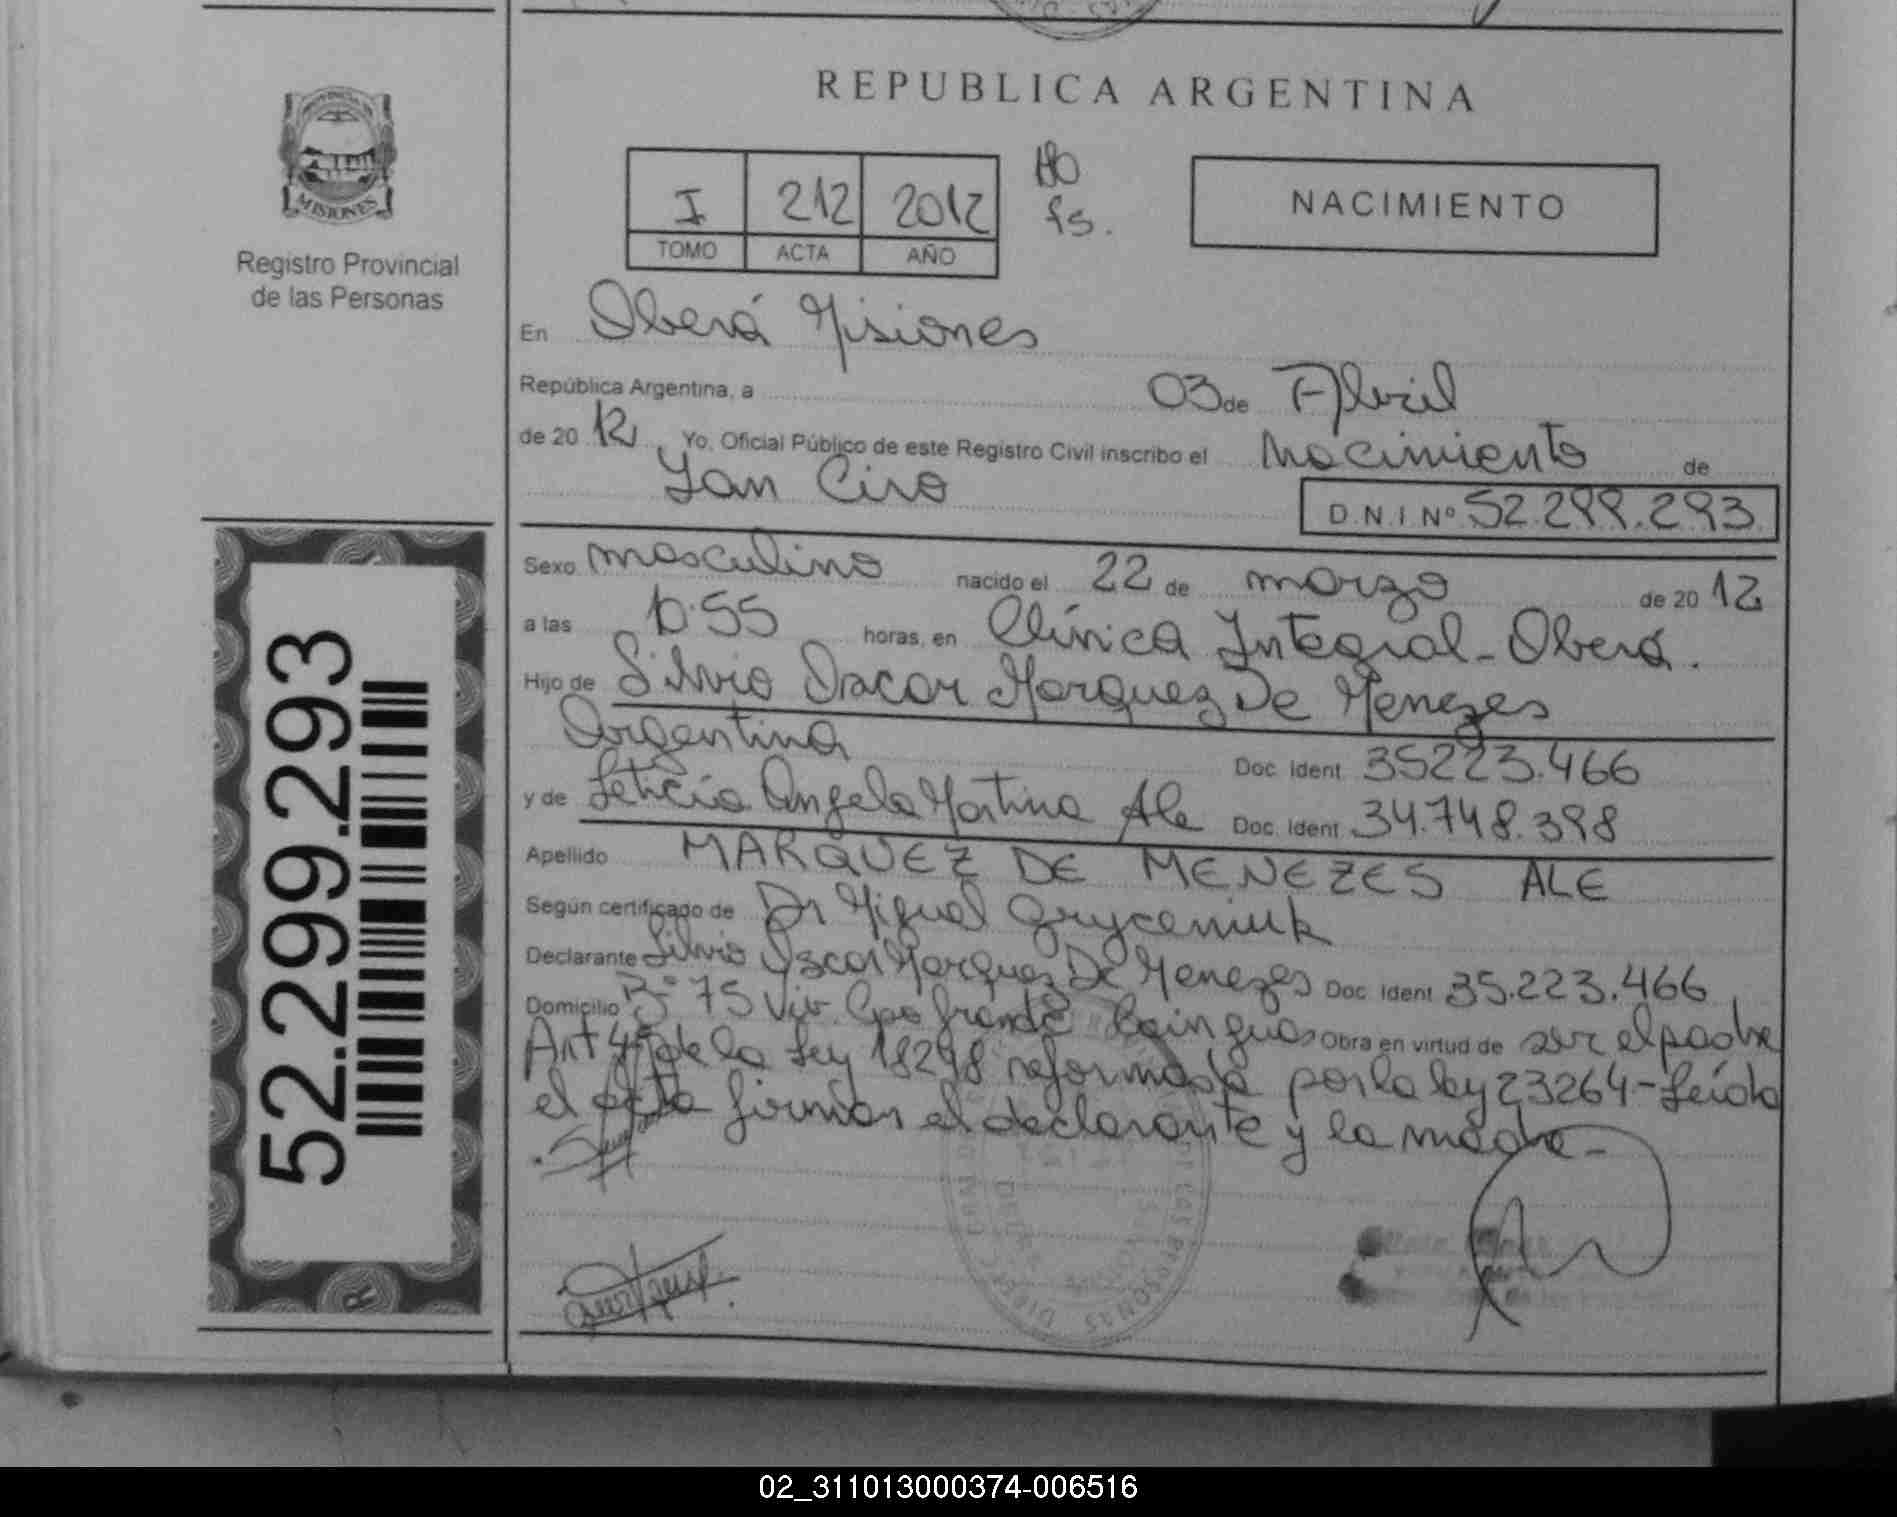 REPUBLICA ARGENTINA
PROVINCIA DE
MISIONES
Registro Provincial
de las Personas
I 212 2012
TOMO ACTA AÑO
fs.
NACIMIENTO
En Oberá Misiones
República Argentina, a 03 de Abril
de 20 12 Yo, Oficial Público de este Registro Civil inscribo el Nacimiento de
Ian Ciro
D.N.I Nº 52.299.293
Sexo masculino nacido el 22 de marzo de 20 12
a las 10:55 horas, en Clínica Integral - Oberá.
Hijo de Silvio Oscar Marquez De Menezes
Argentina Doc. Ident. 35223.466
y de Leticia Angela Martina Ale Doc. Ident. 34.748.398
Apellido MARQUEZ DE MENEZES ALE
Según certificado de Dr Miguel Gryceniuk
Declarante Silvio Oscar Marquez De Menezes Doc. Ident. 35.223.466
Domicilio Bº 75 Viv. Cpo Grande Cainguas Obra en virtud de ser el padre
Art 4º de la Ley 18248 reformada por la ley 23264 - Leída
el acta firman el declarante y la madre -
52.299.293
02_311013000374-006516